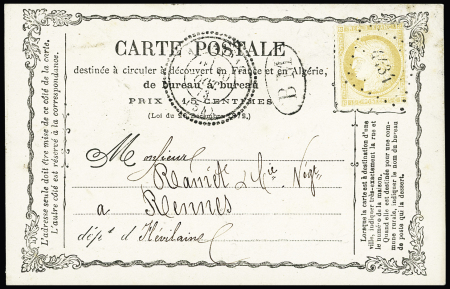 CARTE POSTALE
destinée à circuler à découvert en France et en Algérie,
de bureau à bureau
PRIX 15 CENTIMES
(Loi du 20 décembre 1872.)
B
L'adresse seule doit être mise de ce côté de la carte.
L'autre côté est réservé à la correspondance.
Monsieur
& Cie
a Rennes
dépt d'Hévilaine
Lorsque la carte est à destination d'une
ville, indiquer très-exactement la rue et
le numéro de la maison.
Quand elle est destinée pour une com-
mune rurale, indiquer le nom du bureau
de poste qui la dessert.